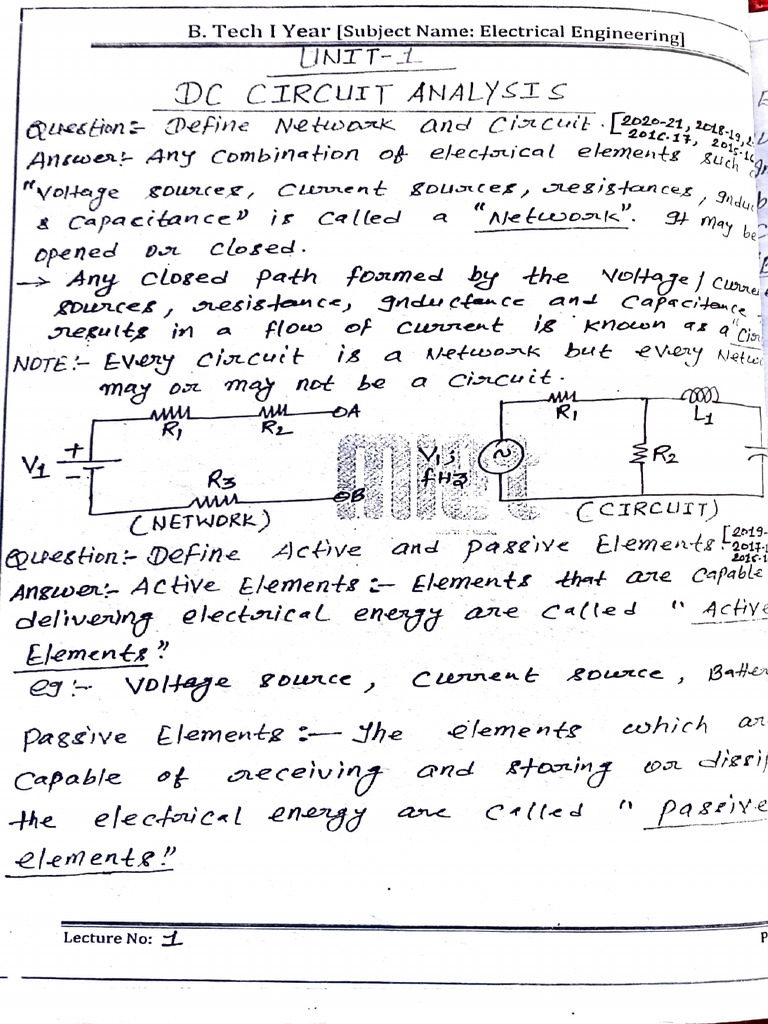 B. Tech I Year [Subject Name: Electrical Engineering]
UNIT-1
DC CIRCUIT ANALYSIS
Question:- Define Network and Circuit. [2020-21, 2018-19,
2016-17, 2015-16
Answer:- Any combination of electrical elements such
"Voltage sources, Current sources, resistances,
& Capacitance" is called a "Network". It may be
opened or closed.
→ Any closed path formed by the Voltage/
sources, resistance, Inductance and Capacitance
results in a flow of current is known as a
NOTE:- Every Circuit is a Network but every
may or may not be a circuit.
R1 R2 A
V1 + -
R3
B
(NETWORK)
miet
R1 L1
V1; fHz
R2
(CIRCUIT)
Question:- Define Active and passive Elements. [2019-
Answer:- Active Elements:- Elements that are capable
delivering electrical energy are called "Active
Elements".
eg:- Voltage source, Current source,
Passive Elements:- The elements which
Capable of receiving and storing or
the electrical energy are called "passive
elements."
Lecture No: 1
P